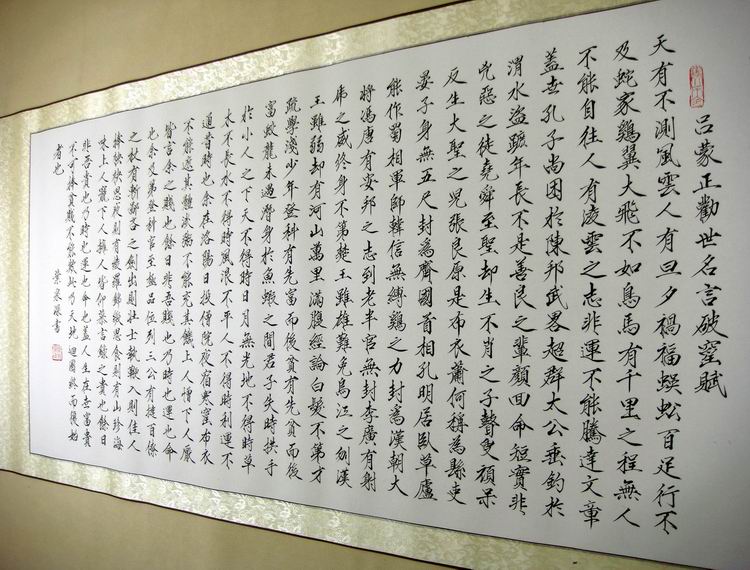 呂蒙正勸世名言破窰賦
天有不測風雲人有旦夕禍福蜈蚣百足行不
及蛇家鷄翼大飛不如鳥馬有千里之程無人
不能自往人有凌雲之志非運不能騰達文章
蓋世孔子尚困於陳邦武畧超群太公垂釣於
渭水盜蹠年長不是善良之輩顏回命短實非
兇惡之徒堯舜至聖却生不肖之子瞽叟頑呆
反生大聖之兒張良原是布衣蕭何稱為縣吏
晏子身無五尺封為齊國首相孔明居臥草廬
能作蜀相軍師韓信無縛鷄之力封為漢朝大
將馮唐有安邦之志到老半官無封李廣有射
虎之威終身不第楚王雖雄難免烏江之刎漢
王雖弱却有河山萬里滿腹經論白髮不第才
疏學淺少年登科有先富而後貧有先貧而後
富蛟龍未遇潛身於魚蝦之間君子失時拱手
於小人之下天不得時日月無光地不得時草
木不長水不得時風浪不平人不得時利運不
通昔時也余在洛陽日投僧院夜宿寒窰布衣
不能遮其體淡粥不能充其饑上人憎下人厭
皆言余之賤也餘曰非吾賤也乃時也運也命
也余及第登科官至極品位列三公有撻百僚
之杖有斬鄙吝之劍出則壯士執鞭入則佳人
捧袂思衣則有綾羅錦緞思食則有山珍海
味上人寵下人擁人皆仰慕言余之貴也餘曰
非吾貴也乃時也運也命也蓋人生在世富貴
不可捧貧賤不能欺此乃天地迴圈終而復始
者也